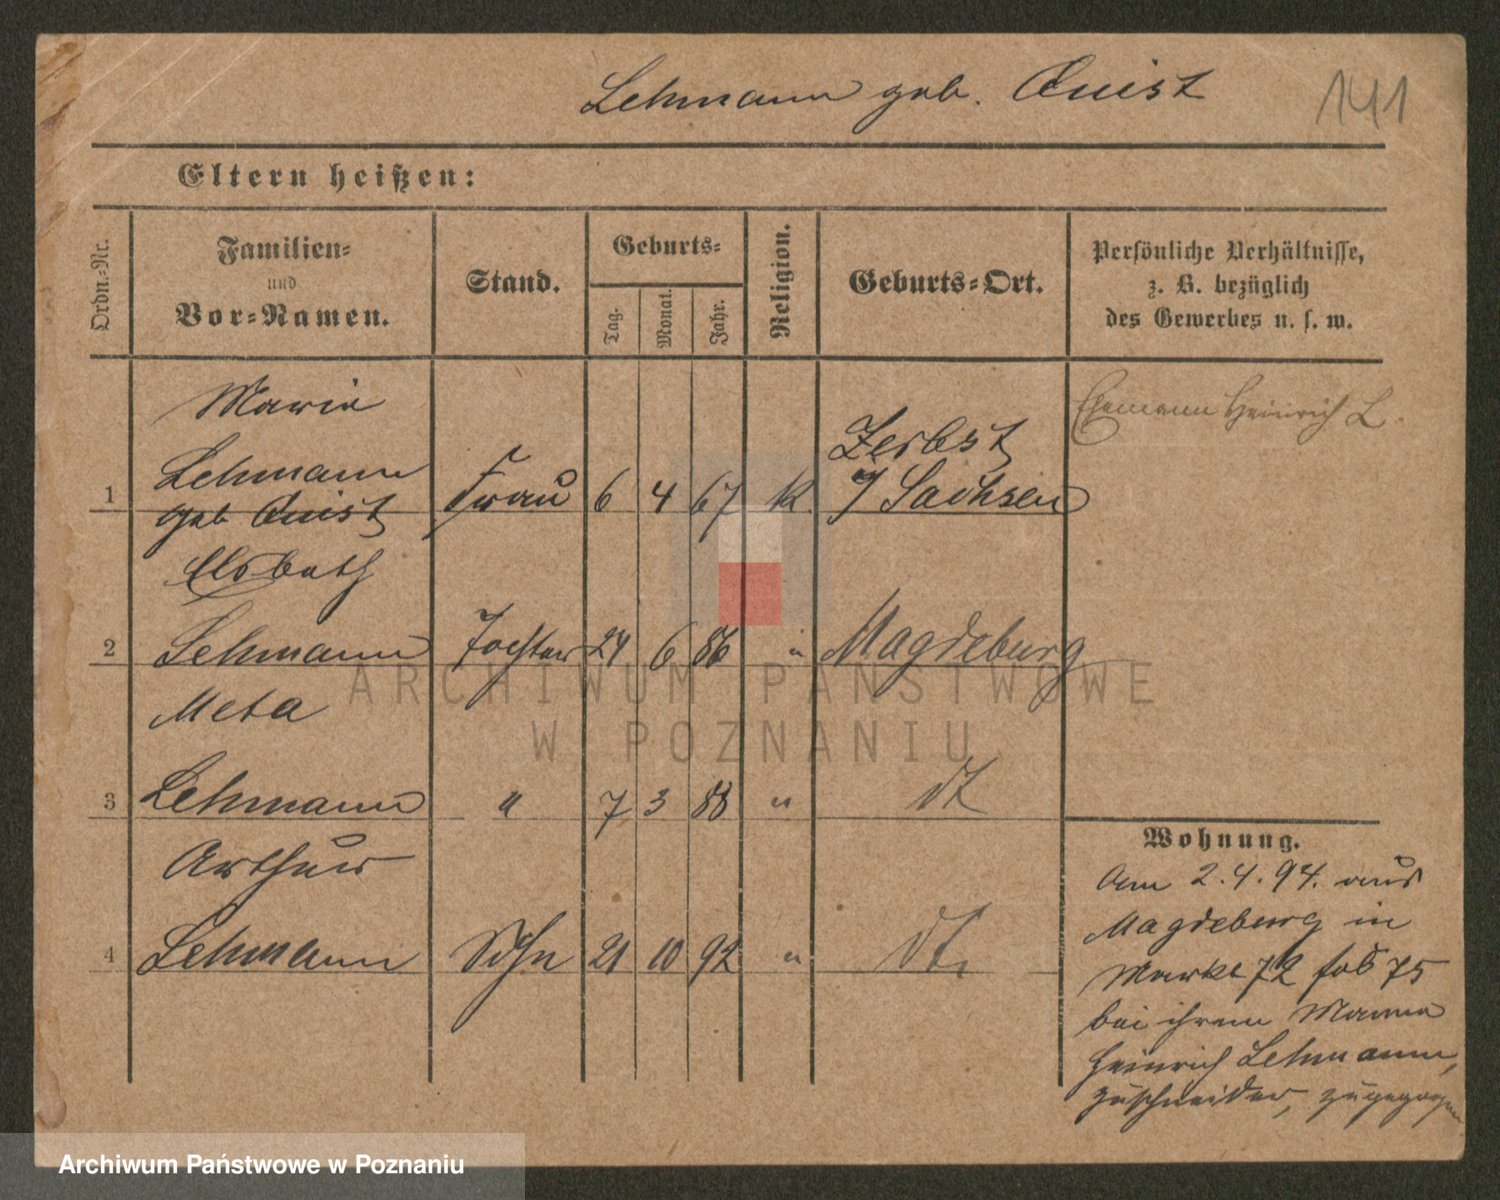 Lehmann geb. Quist
141
Eltern heißen:
Ordn.-Nr.
Familien-
und
Vor-Namen.
Stand.
Geburts-
Tag.
Monat.
Jahr.
Religion.
Geburts-Ort.
Persönliche Verhältnisse,
z. B. bezüglich
des Gewerbes u. s. w.
Marie
1 Lehmann
geb Quist
Frau 6 4 67 k.
Zerbst
Sachsen
Ehemann Heinrich L.
Elsbeth
2 Lehmann Tochter 24 6 86 " Magdeburg
Meta
3 Lehmann " 7 3 88 " dt
Arthur
4 Lehmann Sohn 21 10 92 " dt.
Wohnung.
Am 2.4.94. aus
Magdeburg in
Markt 72 75
bei ihrem Manne
Heinrich Lehmann,
Zuschneider, zugezogen
ARCHIWUM PAŃSTWOWE
W POZNANIU
Archiwum Państwowe w Poznaniu